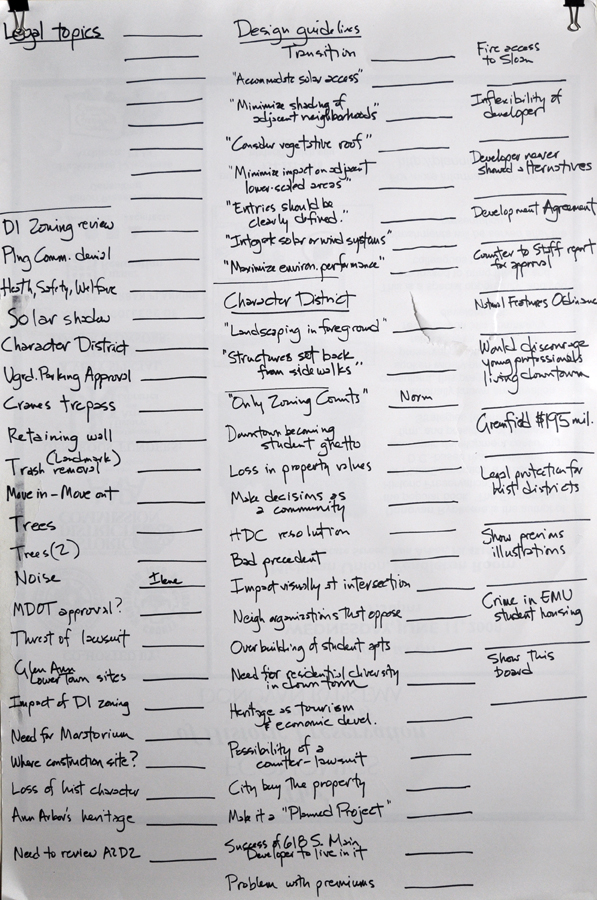 Legal topics
D1 Zoning review
Plng Comm. denial
Health, Safety, Welfare
Solar shadow
Character District
Ugrd. Parking Approval
Cranes trepass
Retaining wall
(Landmark)
Trash removal
Move in - Move out
Trees
Trees (2)
Noise Ilene
MDOT approval?
Threat of lawsuit
Glen Ann
Lower Town sites
Impact of D1 zoning
Need for Moratorium
Where construction site?
Loss of hist character
Ann Arbor's heritage
Need to review A2D2
Design guidelines
Transition
"Accommodate solar access"
"Minimize shading of
adjacent neighborhoods"
"Consider vegetative roof"
"Minimize impact on adjacent
lower-scaled areas"
"Entries should be
clearly defined."
"Integrate solar or wind systems"
"Maximize environ. performance"
Character District
"Landscaping in foreground"
"Structures set back
from sidewalks"
"Only Zoning Counts" Norm
Downtown becoming
student ghetto
Loss in property values
Make decisions as
a community
HDC resolution
Bad precedent
Impact visually at intersection
Neigh organizations that oppose
Overbuilding of student apts
Need for residential diversity
in downtown
Heritage as tourism
& economic devel.
Possibility of a
counter-lawsuit
City buy the property
Make it a "Planned Project"
Success of 618 S. Main
Developer to live in it
Problem with premiums
Fire access
to Sloan
Inflexibility of
developer
Developer never
showed alternatives
Development Agreement
Counter to Staff report
for approval
Natural Features Ordinance
Would discourage
young professionals
living downtown
Greenfield $195 mil.
Legal protection for
hist districts
Show previous
illustrations
Crime in EMU
student housing
Show this
board